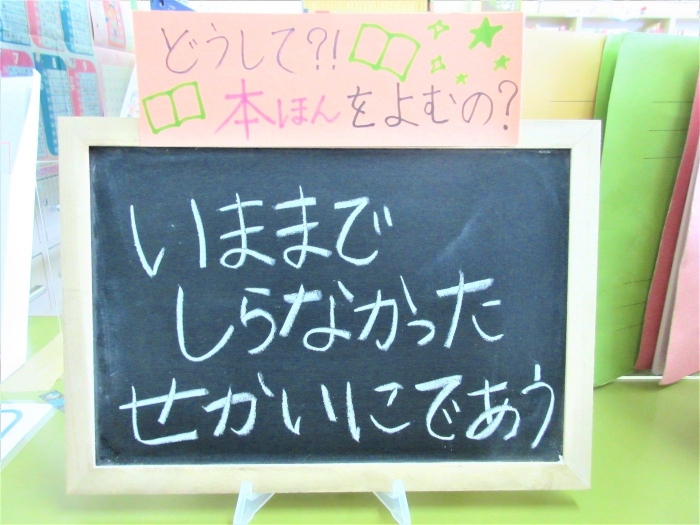 どうして?!
本ほんをよむの?
いままで
しらなかった
せかいにであう